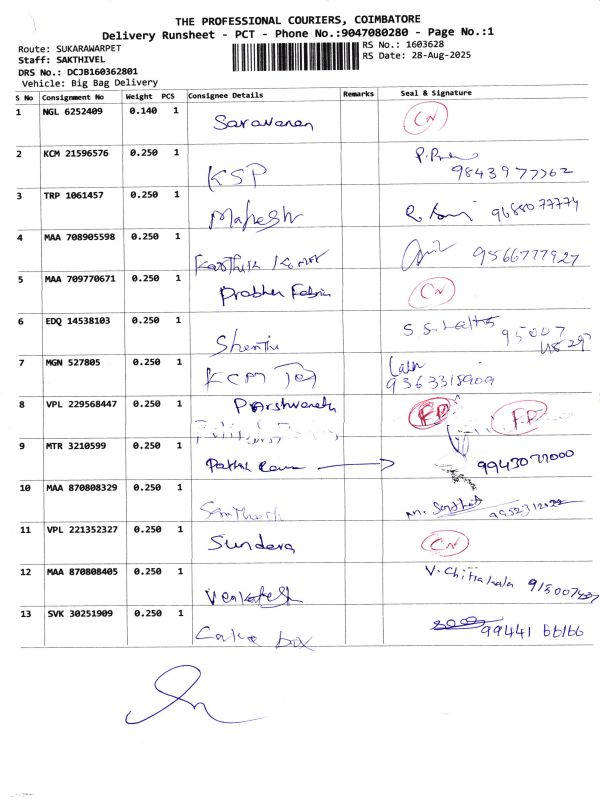 THE PROFESSIONAL COURIERS, COIMBATORE
Delivery Runsheet - PCT - Phone No.:9047080280 - Page No.:1
Route: SUKARAWARPET
RS No.: 1603628
Staff: SAKTHIVEL
RS Date: 28-Aug-2025
DRS No.: DCJB160362801
Vehicle: Big Bag Delivery
S No Consignment No Weight PCS Consignee Details Remarks Seal & Signature
1 NGL 6252409 0.140 1 Saravanan CN
2 KCM 21596576 0.250 1 KSP
3 TRP 1061457 0.250 1 Mahesh
4 MAA 708905598 0.250 1 Karthik 9566777927
5 MAA 709770671 0.250 1 Prabhu CN
6 EDQ 14538103 0.250 1
7 MGN 527805 0.250 1 KCM Tex 9363318909
8 VPL 229568447 0.250 1 FP FP
9 MTR 3210599 0.250 1 9943077000
10 MAA 870808329 0.250 1 Santhosh
11 VPL 221352327 0.250 1 Sundera CN
12 MAA 870808405 0.250 1 Venkatesh V. Chitrakala
13 SVK 30251909 0.250 1 Cake box 99441 66166